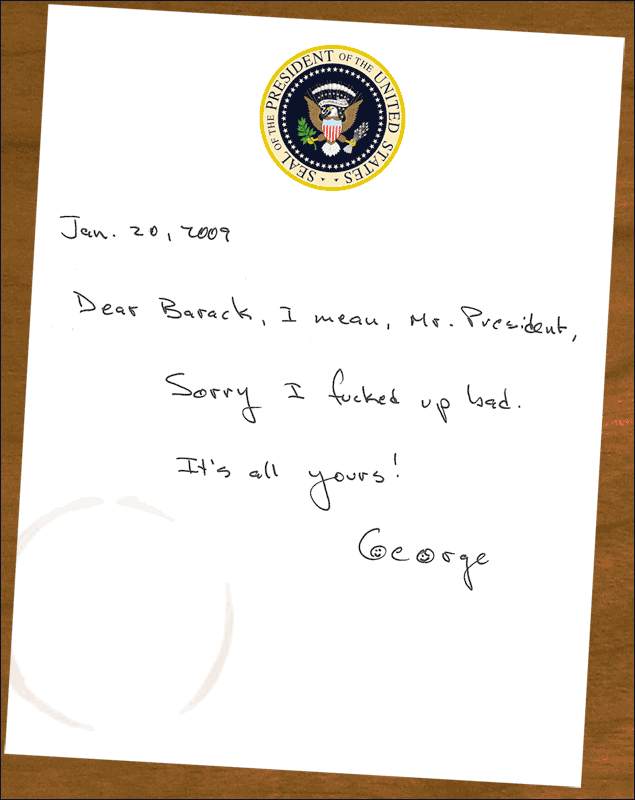 SEAL OF THE PRESIDENT OF THE UNITED STATES
Jan. 20, 2009
Dear Barack, I mean, Mr. President,
Sorry I fucked up bad.
It's all yours!
George